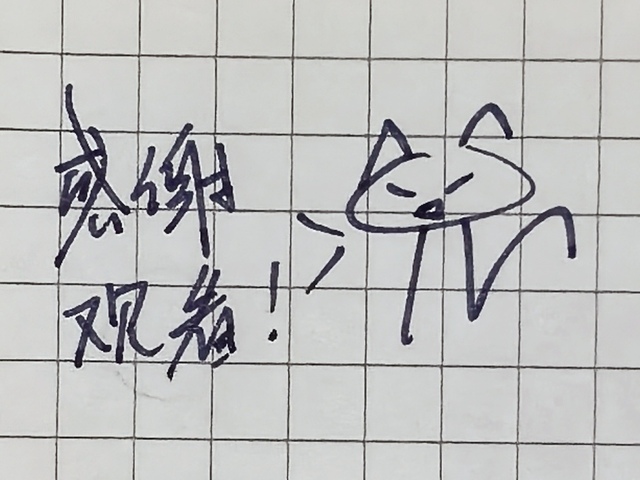 感谢
观看!